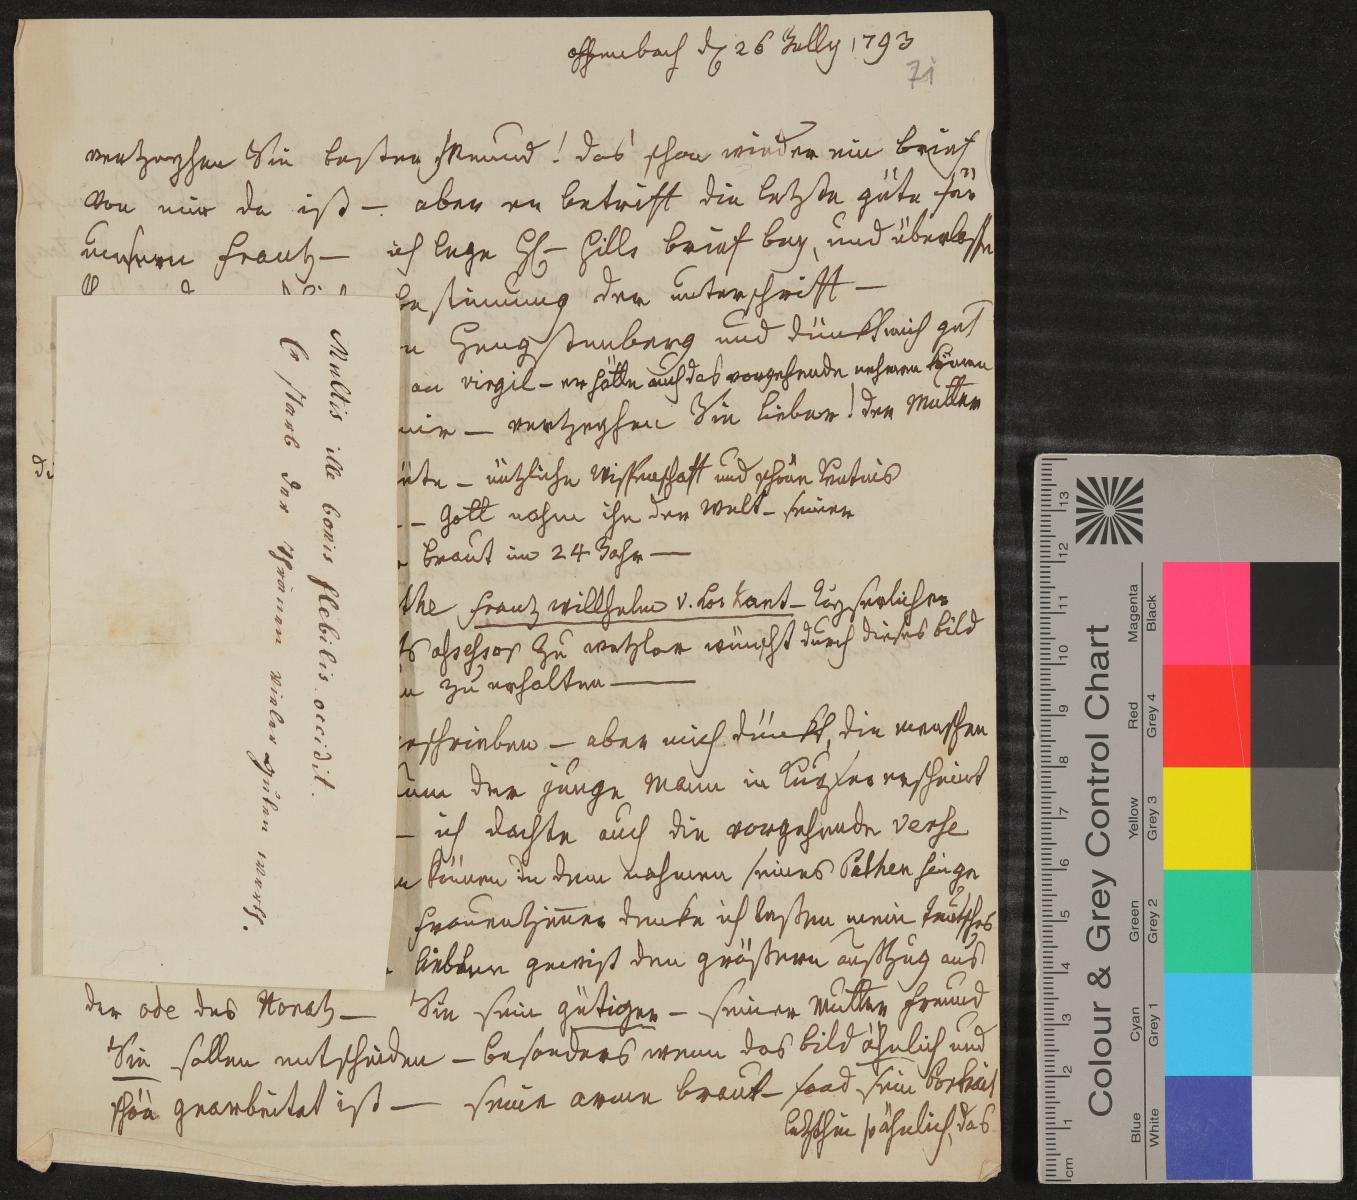 offenbach d 26 Jully 1793
71
vertzeyhen Sie bester freund! das schon wieder ein brief
von mir da ist — aber er betrift die letzte güte für
unsern frantz — ich lege H — Hills brief bey, und überlasse
bestimung der unterschrifft —
Hengstenberg und dünckt mich gut
an virgil — er hätte auch das vorgehende nehmen könen
mir — vertzeyhen Sie lieber! der Mutter
di
üte — nützliche wissenschafft und schöne kentnis
— Gott nahm ihn der welt — seiner
braut im 24 Jahr —
the frantz willhelm v. Loskant — kayserlicher
ts assessor zu wetzlar wünscht durch dieses bild
zu erhalten —
eschrieben — aber mich dünckt, die menschen
um der junge Mann in kupfer erscheint
— ich dachte auch die vorgehende verse
können in dem nahmen seines Pathen hinge
frauenzimer dencke ich lassen mein teutsches
liebber gewist den grösern ausszug aus
der ode des Horatz — Sie sein gütiger — seiner Mutter freund
Sie sollen entscheiden — besonders wenn das bild ähnlich und
schön gearbeitet ist — seine arme braut — fand sein Portrait
letzthin so ähnlich, das
Multis ille bonis flebilis occidit.
Er starb der thränen vieler Guten werth.
Colour & Grey Control Chart
Blue Cyan Green Yellow Red Magenta
White Grey 1 Grey 2 Grey 3 Grey 4 Black
cm 1 2 3 4 5 6 7 8 9 10 11 12 13